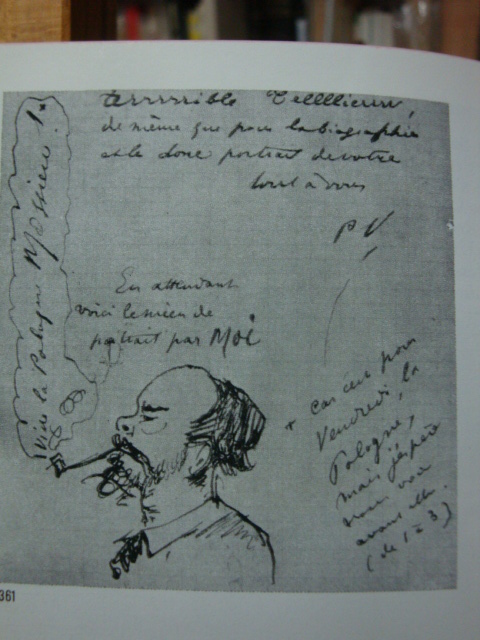 terrrrrible Tellllieur,
de même que pour la biographie
et le doux portrait de votre
tout à vous
P V
En attendant
voici le mien de
portrait par MOI
Vive la Pologne Mossieu !*
* car c'est pour
Vendredi, la
Pologne,
mais j'espère
vous voir
avant elle.
(de 1 à 3)
361